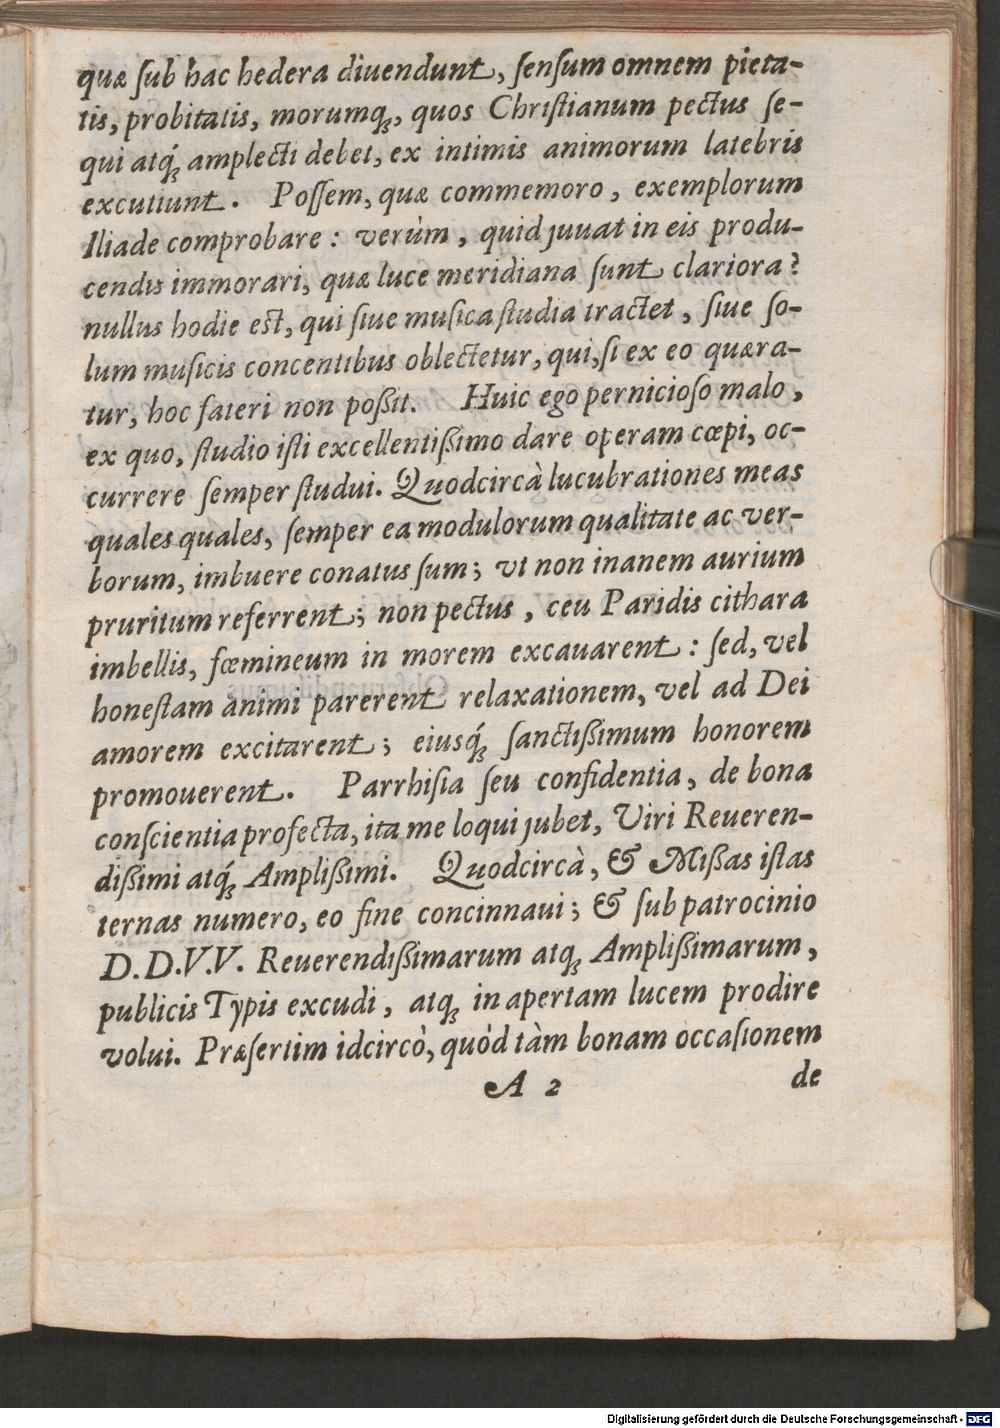 quæ ſub hac hedera diuendunt, ſenſum omnem pieta-
tis, probitatis, morumq́;, quos Chriſtianum pectus ſe-
qui atq́; amplecti debet, ex intimis animorum latebris
excutiunt. Poſſem, quæ commemoro, exemplorum
Iliade comprobare: verùm, quid juuat in eis produ-
cendis immorari, quæ luce meridiana ſunt clariora?
nullus hodie eſt, qui ſiue muſica ſtudia tractet, ſiue ſo-
lum muſicis concentibus oblectetur, qui, ſi ex eo quæra-
tur, hoc fateri non poßit. Huic ego pernicioſo malo,
ex quo, ſtudio iſti excellentißimo dare operam cœpi, oc-
currere ſemper ſtudui. Quodcircà lucubrationes meas
quales quales, ſemper ea modulorum qualitate ac ver-
borum, imbuere conatus ſum; vt non inanem aurium
pruritum referrent; non pectus, ceu Paridis cithara
imbellis, fœmineum in morem excauarent: ſed, vel
honeſtam animi parerent relaxationem, vel ad Dei
amorem excitarent; eiusq́; ſanctißimum honorem
promouerent. Parrhiſia ſeu confidentia, de bona
conſcientia profecta, ita me loqui jubet, Viri Reueren-
dißimi atq́; Amplißimi. Quodcircà, & Mißas iſtas
ternas numero, eo fine concinnaui; & ſub patrocinio
D.D.V.V. Reuerendißimarum atq; Amplißimarum,
publicis Typis excudi, atq; in apertam lucem prodire
volui. Præſertim idcircò, quòd tàm bonam occaſionem
A 2 de
Digitalisierung gefördert durch die Deutsche Forschungsgemeinschaft - DFG